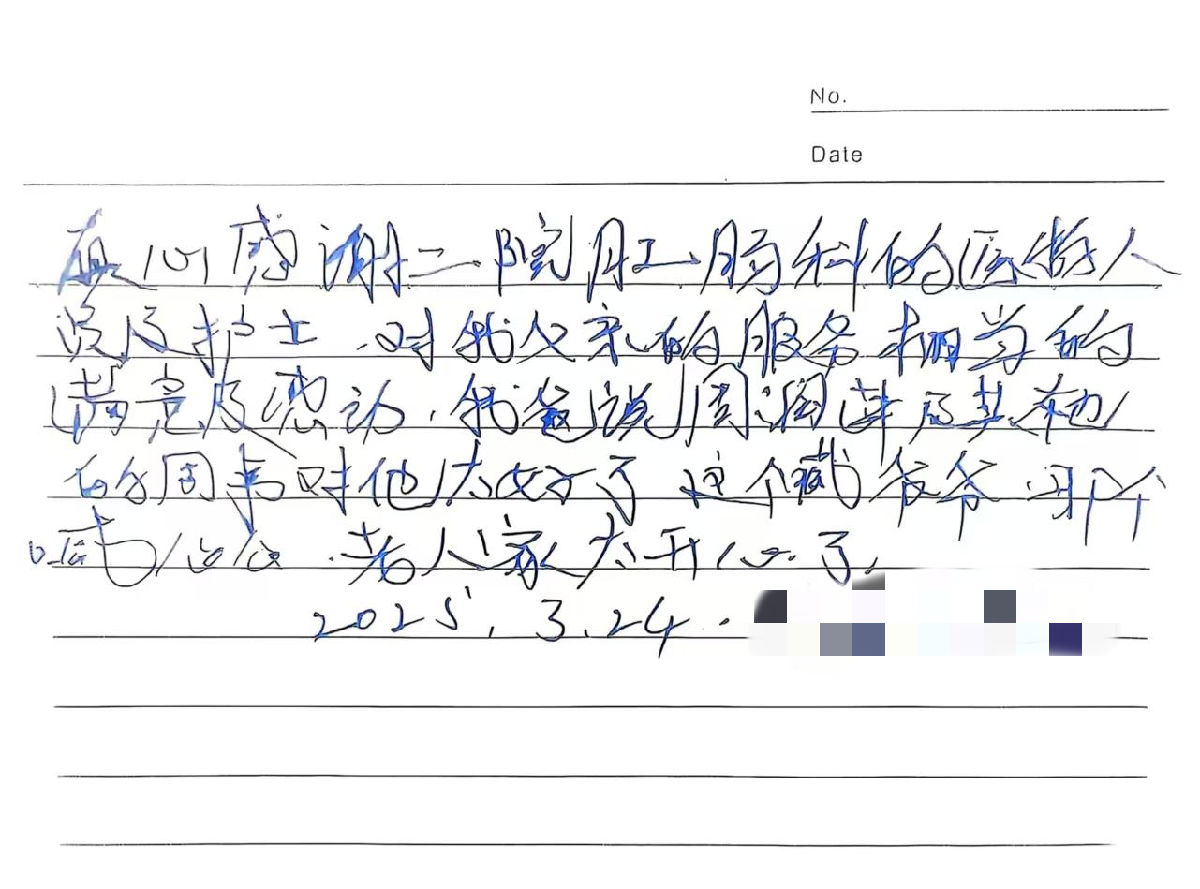 No.
Date
真心感谢二院肛肠科的医务人
员及护士.对我父亲的服务相当的
满意及感动.我爸说周润萍及其他
的同事对他太好了 这个喊爷爷 那个
喊公公.老人家太开心了.
2025.3.24.